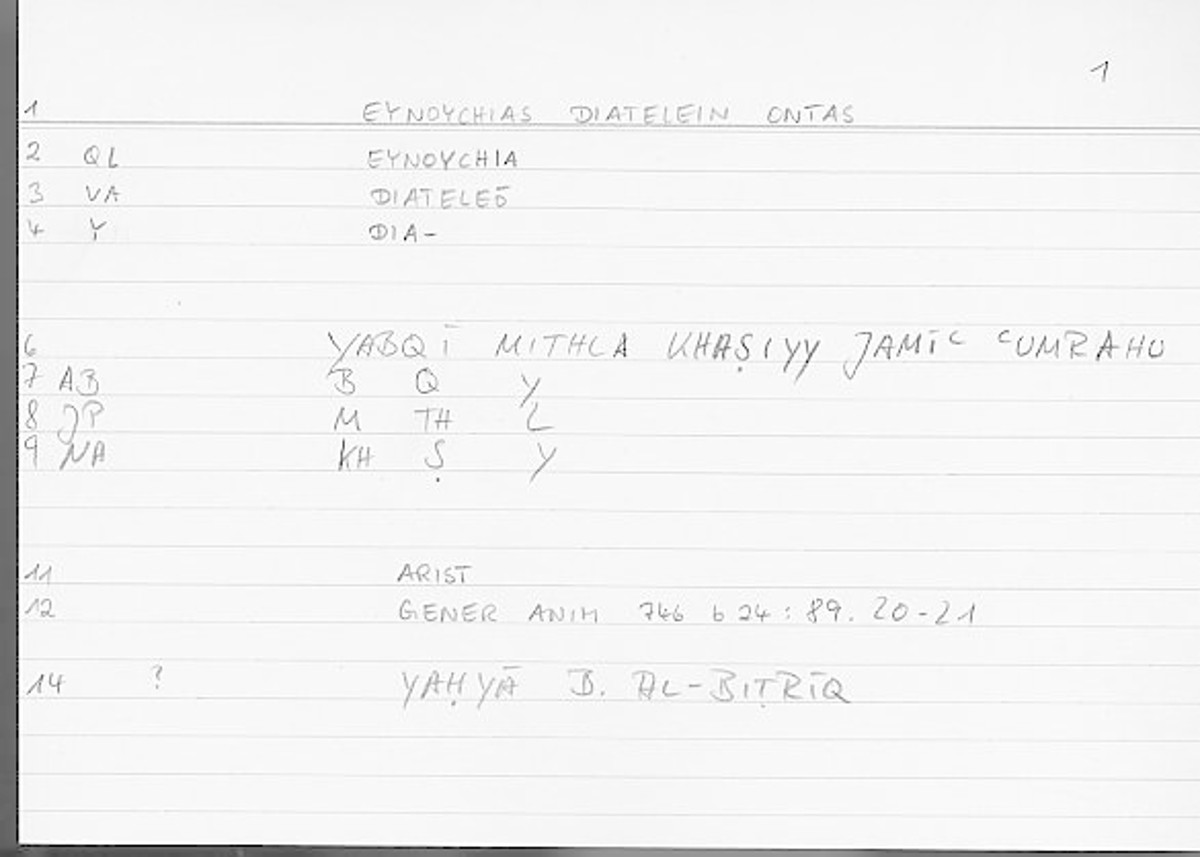 1
1 EYNOYCHIAS DIATELEIN ONTAS
2 QL EYNOYCHIA
3 VA DIATELEŌ
4 Y DIA-
6 YABQĪ MITHLA KHAṢIYY JAMĪʿ ʿUMRAHU
7 AB B Q Y
8 JP M TH L
9 NA KH Ṣ Y
11 ARIST
12 GENER ANIM 746 b 24 : 89. 20-21
14 ? YAḤYĀ B. AL-BIṬRĪQ